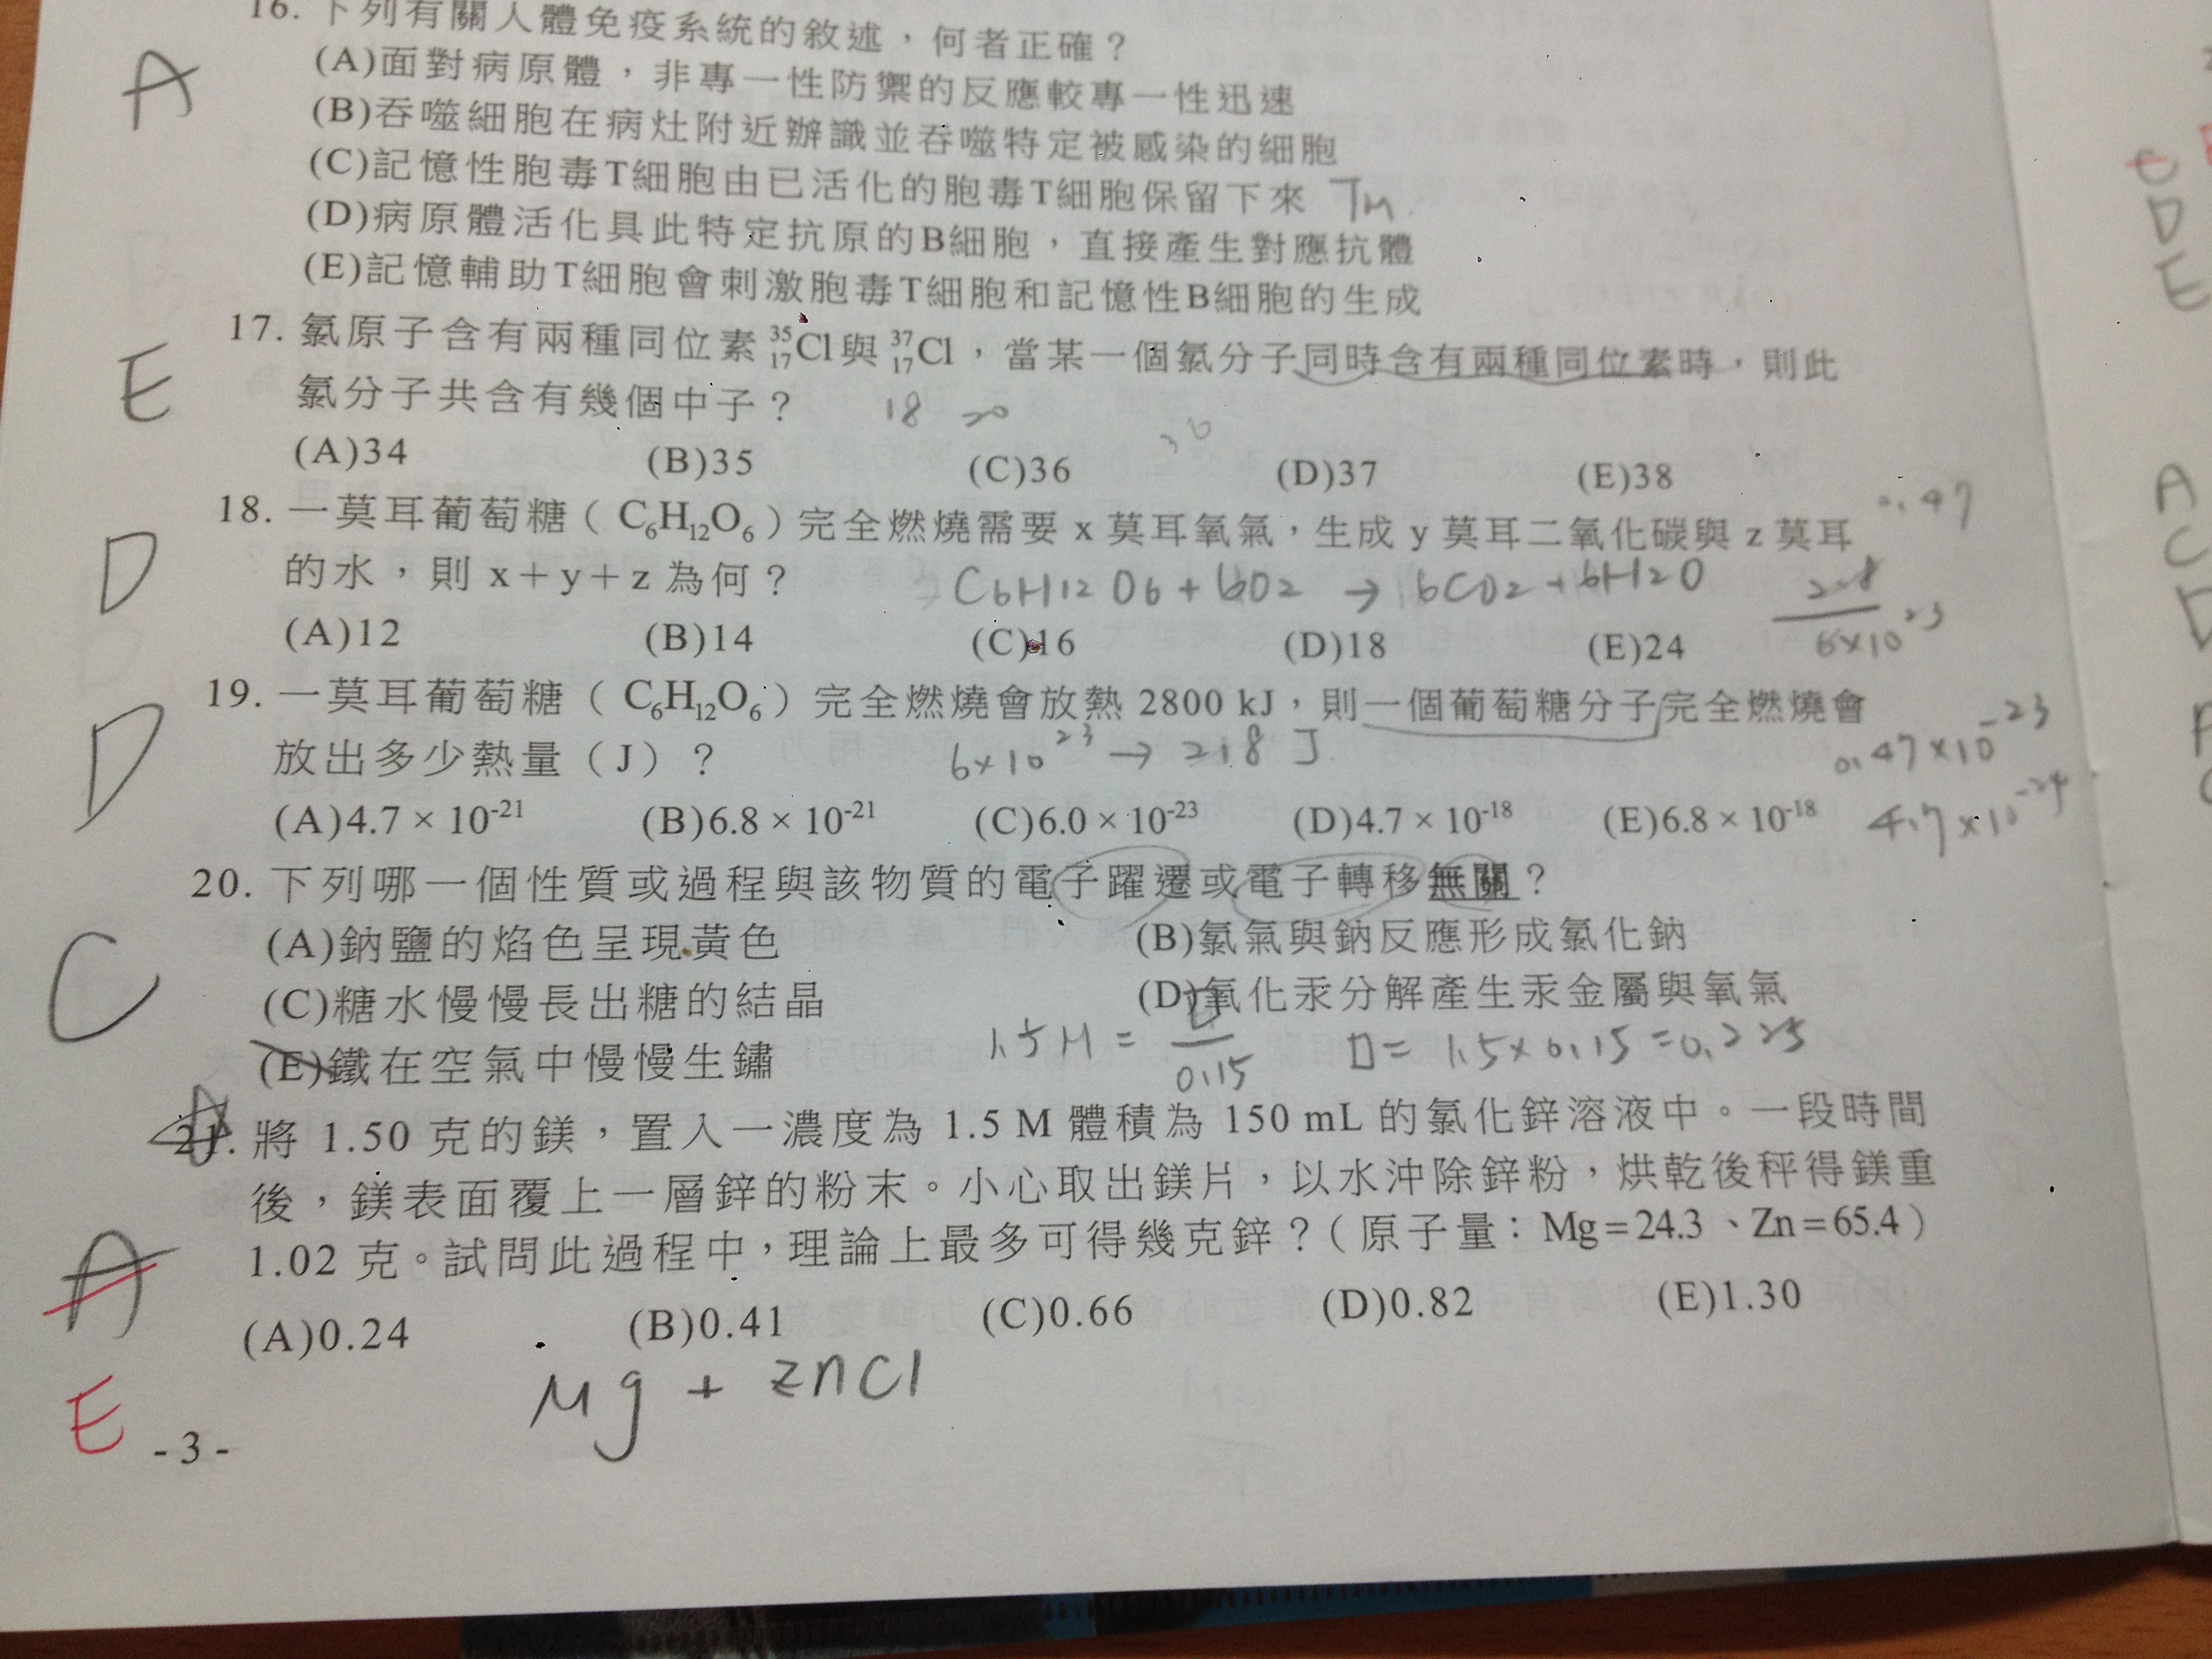 16. 下列有關人體免疫系統的敘述，何者正確？
A
(A)面對病原體，非專一性防禦的反應較專一性迅速
(B)吞噬細胞在病灶附近辦識並吞噬特定被感染的細胞
(C)記憶性胞毒T細胞由已活化的胞毒T細胞保留下來 Tm
(D)病原體活化具此特定抗原的B細胞，直接產生對應抗體
(E)記憶輔助T細胞會刺激胞毒T細胞和記憶性B細胞的生成
E
17. 氯原子含有兩種同位素 ³⁵₁₇Cl與 ³⁷₁₇Cl，當某一個氯分子同時含有兩種同位素時，則此
氯分子共含有幾個中子？ 18 20
(A)34 (B)35 (C)36 (D)37 (E)38
D
18. 一莫耳葡萄糖（C₆H₁₂O₆）完全燃燒需要 x 莫耳氧氣，生成 y 莫耳二氧化碳與 z 莫耳 0.47
的水，則 x＋y＋z 為何？ C6H12O6 + 6O2 → 6CO2 + 6H2O
2.8
6×10²³
(A)12 (B)14 (C)16 (D)18 (E)24
D
19. 一莫耳葡萄糖（C₆H₁₂O₆）完全燃燒會放熱 2800 kJ，則一個葡萄糖分子完全燃燒會
放出多少熱量（J）？ 6×10²³ → 2.8 J 0.47×10⁻²³
(A)4.7 × 10⁻²¹ (B)6.8 × 10⁻²¹ (C)6.0 × 10⁻²³ (D)4.7 × 10⁻¹⁸ (E)6.8 × 10⁻¹⁸ 4.7×10⁻²⁴
20. 下列哪一個性質或過程與該物質的電子躍遷或電子轉移無關？
C
(A)鈉鹽的焰色呈現黃色 (B)氯氣與鈉反應形成氯化鈉
(C)糖水慢慢長出糖的結晶 (D)氧化汞分解產生汞金屬與氧氣
(E)鐵在空氣中慢慢生鏽
1.5M = □/0.15 □= 1.5×0.15=0.225
21. 將 1.50 克的鎂，置入一濃度為 1.5 M 體積為 150 mL 的氯化鋅溶液中。一段時間
後，鎂表面覆上一層鋅的粉末。小心取出鎂片，以水沖除鋅粉，烘乾後秤得鎂重
1.02 克。試問此過程中，理論上最多可得幾克鋅？（原子量：Mg＝24.3、Zn＝65.4）
A
(A)0.24 (B)0.41 (C)0.66 (D)0.82 (E)1.30
Mg + ZnCl
E
- 3 -
D
E
A
C